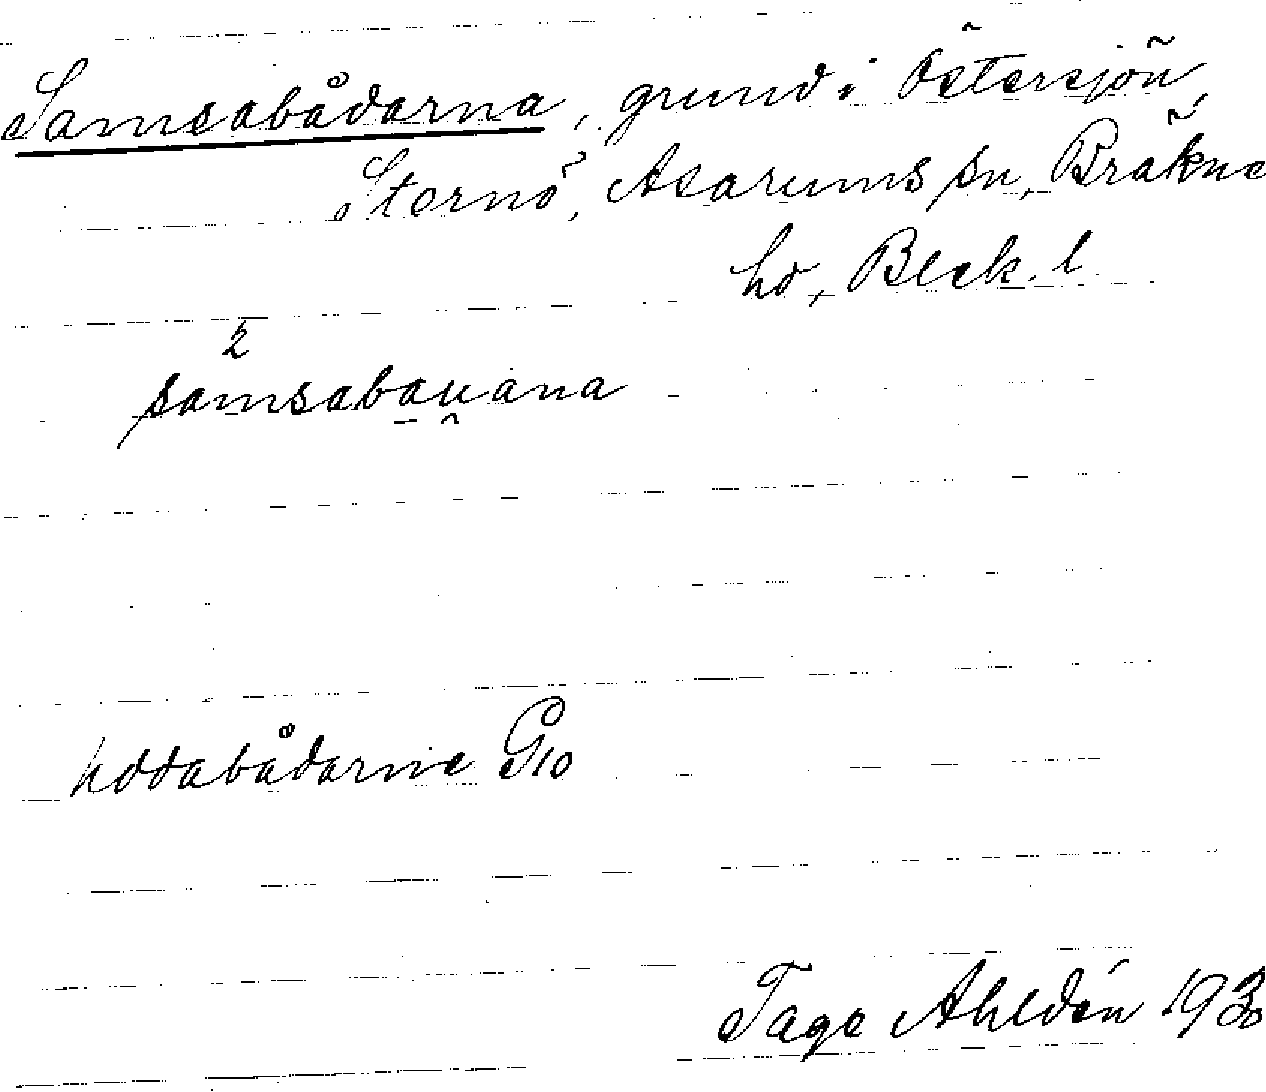 Samsabådarna, grund i Östersjön,
Sternö, Asarums sn, Bräkne
hd, Blek. l.
2
samsabau̯ana
uddabådarne G10
Tage Ahldén 193